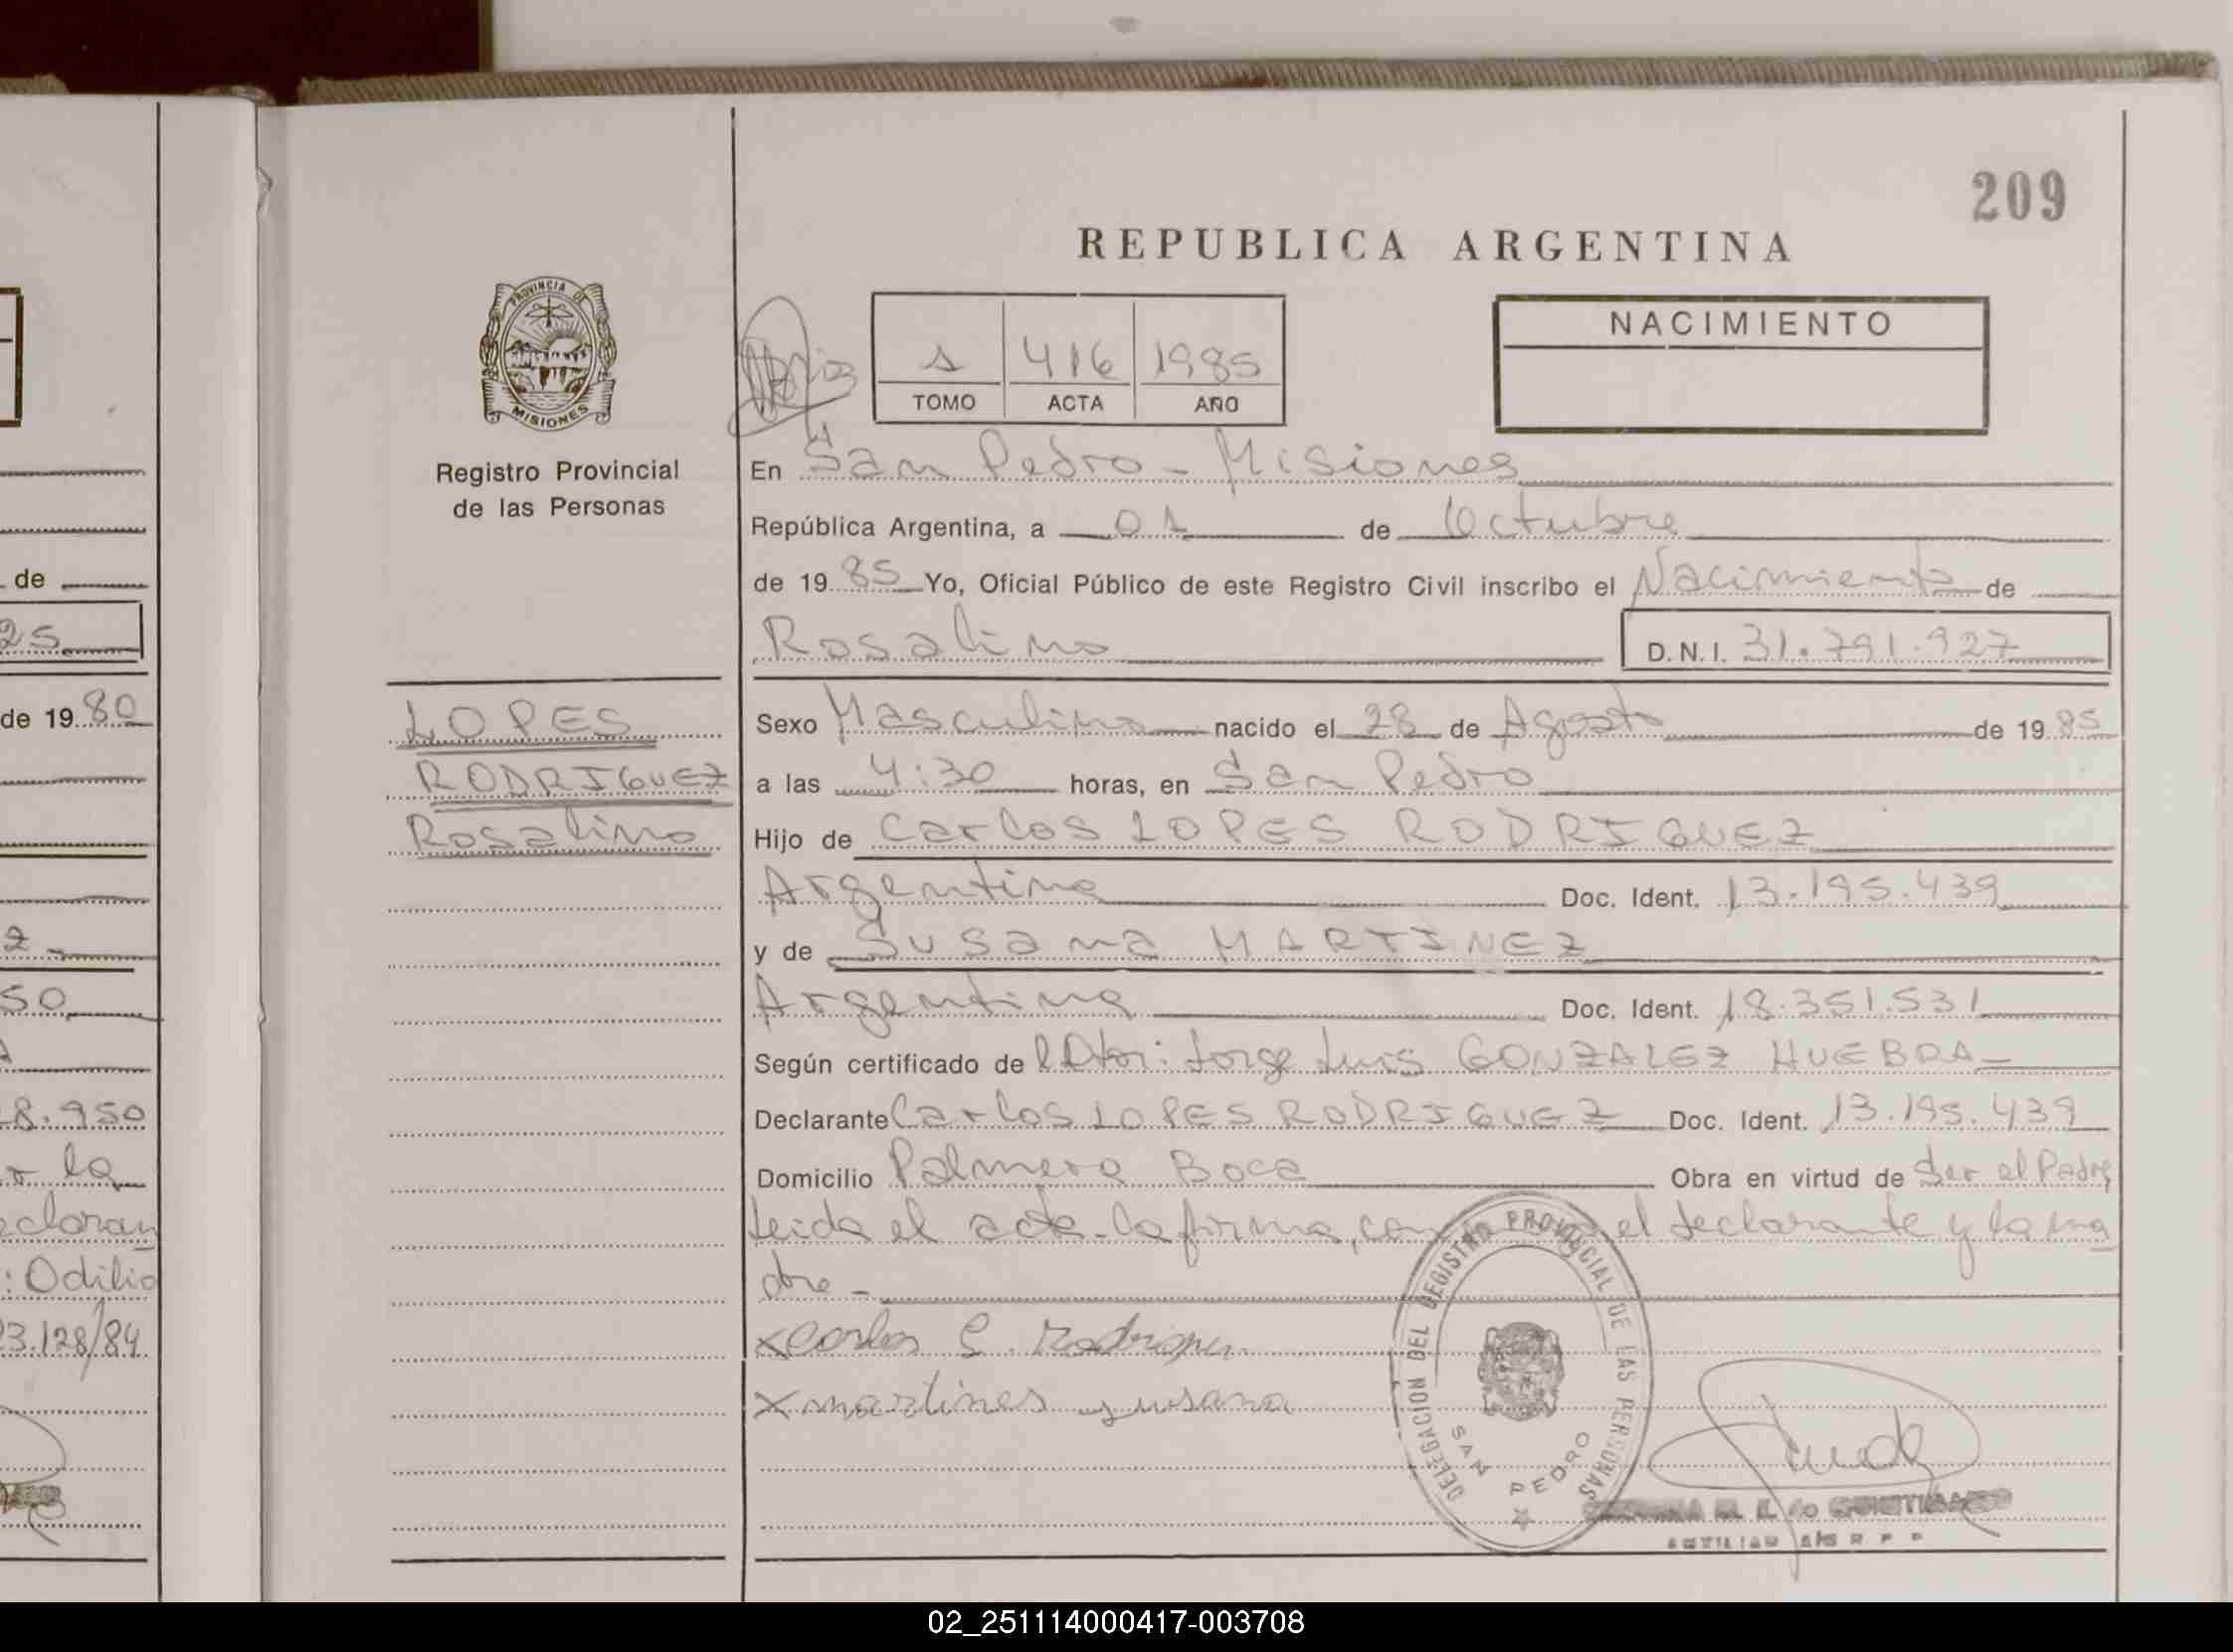 209
REPUBLICA ARGENTINA
PROVINCIA DE
MISIONES
Registro Provincial
de las Personas
1 416 1985
TOMO ACTA AÑO
NACIMIENTO
En San Pedro - Misiones
República Argentina, a 01 de Octubre
de 1985 Yo, Oficial Público de este Registro Civil inscribo el Nacimiento de
Rosalino D.N.I. 31.791.927
LOPES
RODRIGUEZ
Rosalino
Sexo Masculino nacido el 28 de Agosto de 1985
a las 4:30 horas, en San Pedro
Hijo de Carlos LOPES RODRIGUEZ
Argentino Doc. Ident. 13.195.439
y de Susana MARTINEZ
Argentina Doc. Ident. 18.351.531
Según certificado de Jorge Luis GONZALEZ HUEBRA
Declarante Carlos LOPES RODRIGUEZ Doc. Ident. 13.195.439
Domicilio Palmera Boca Obra en virtud de Ser el Padre
Leida el acta la firma, el declarante y la ma
dre -
x Carlos L. Rodriguez
x martines susana
DELEGACION DEL REGISTRO PROVINCIAL DE LAS PERSONAS
SAN PEDRO
AUXILIAR R P P
de
25
de 1980
2
50
28.950
r la
eclaran
: Odilio
23.128/84
02_251114000417-003708